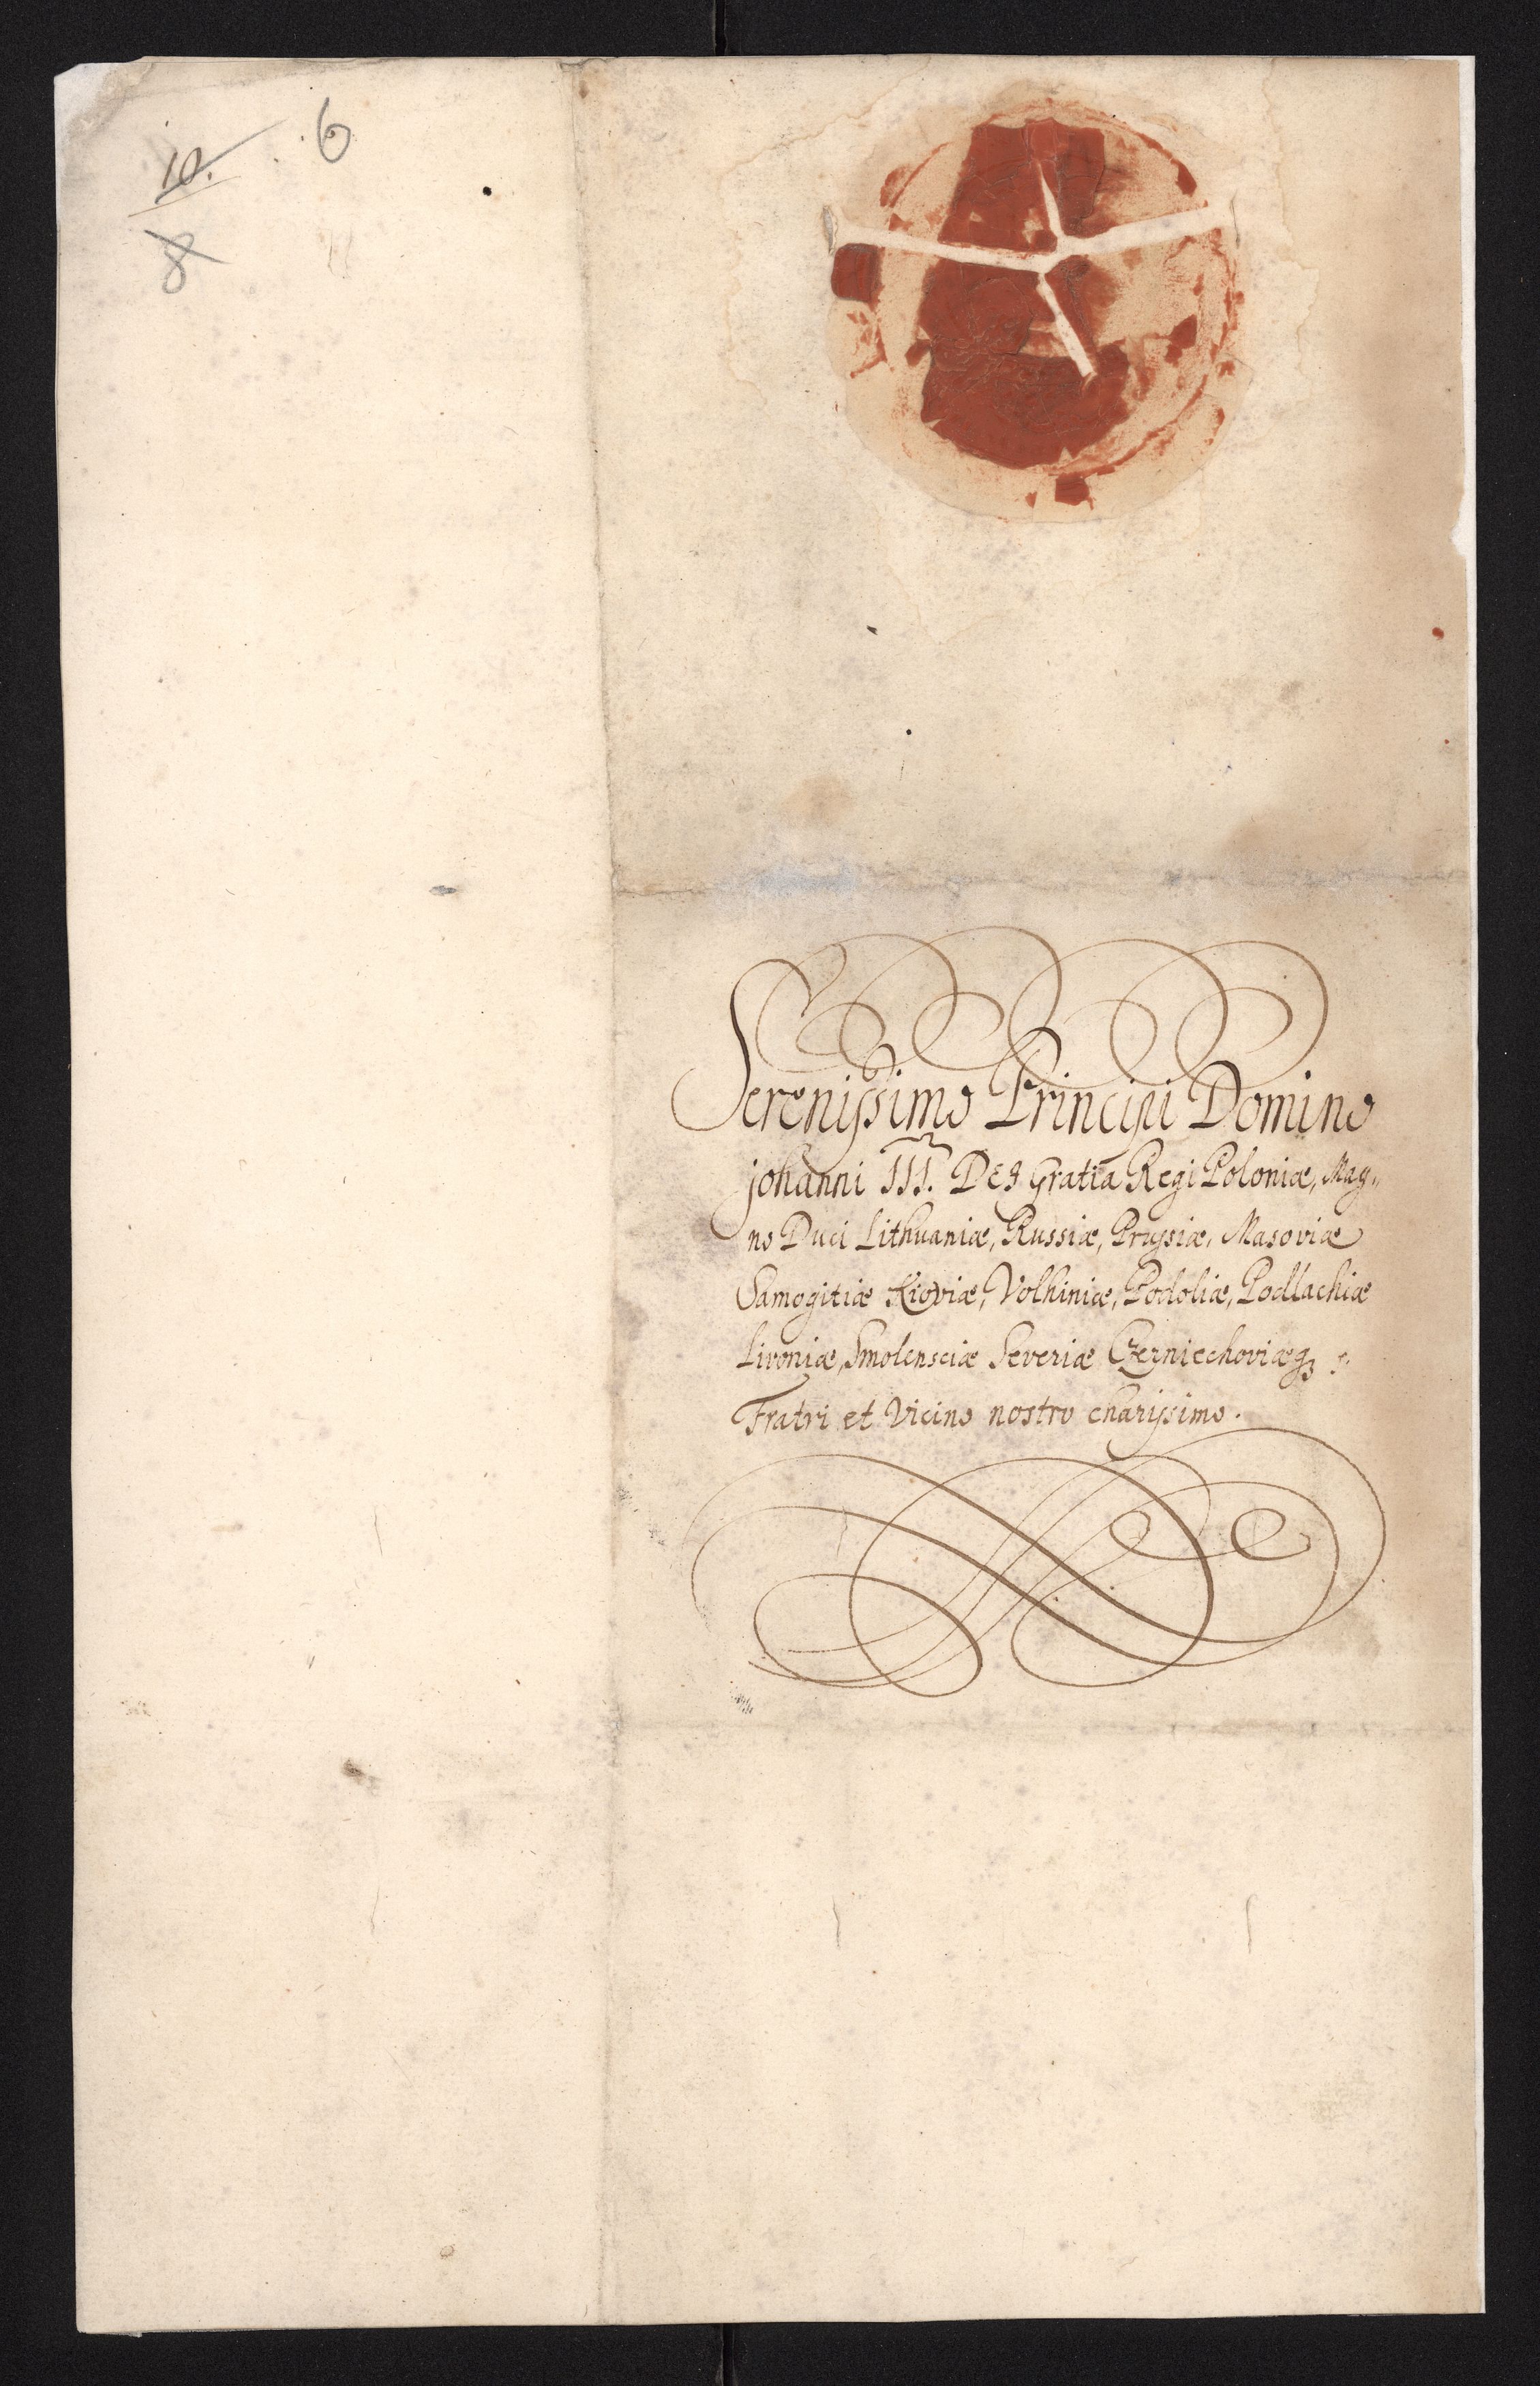 10.
6
8
Serenissimo Principi Domino
Johanni III. Dei Gratia Regi Poloniæ, Mag„
no Duci Lithuaniæ, Russiæ, Prussiæ, Masoviæ
Samogitiæ Kioviæ, Volhiniæ, Podoliæ, Podlachiæ
Livoniæ, Smolensciæ Severiæ Czerniechoviæq3
Fratri et Vicino nostro charissimo.